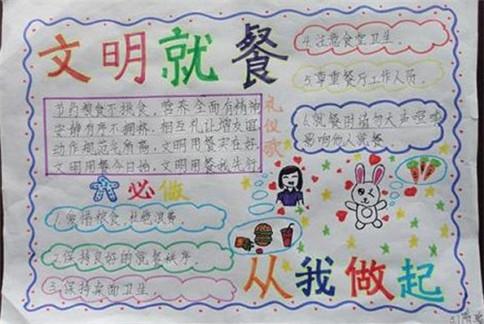 文明就餐
礼仪歌
节约粮食不挑食，营养全面有精神
安静有序不拥挤，相互礼让增友谊
动作规范气所需，文明用餐实在好
文明用餐今日始，文明用餐我先行
六必做
1.爱惜粮食，杜绝浪费。
2.保持良好的就餐秩序。
3.保持桌面卫生。
4.注意食堂卫生。
5.尊重餐厅工作人员。
6.就餐用请勿大声喧哗
影响他人就餐。
从我做起